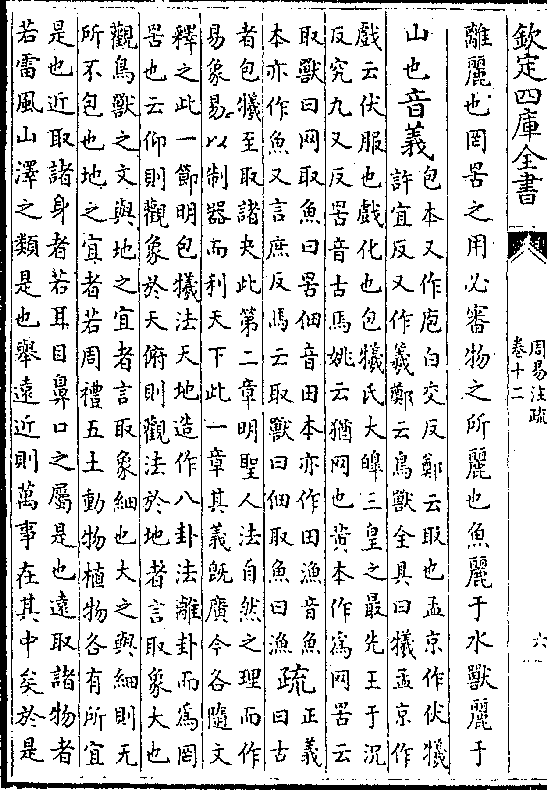 欽定四庫全書
周易注疏
卷十二
六
離麗也罔罟之用必審物之所麗也魚麗于水獸麗于
山也音義
包本又作庖白交反鄭云取也孟京作伏犧
許宜反又作羲鄭云鳥獸全具曰犧孟京作
戲云伏服也戲化也包犧氏大皥三皇之最先王于況
反究九又反罟音古馬姚云猶网也黄本作為网罟云
取獸曰网取魚曰罟佃音田本亦作田漁音魚
本亦作魚又言庶反馬云取獸曰佃取魚曰漁
疏
正義
曰古
者包犧至取諸夬此第二章明聖人法自然之理而作
易象易以制器而利天下此一章其義既廣今各隨文
釋之此一節明包犧法天地造作八卦法離卦而為罔
罟也云仰則觀象於天俯則觀法於地者言取象大也
觀鳥獸之文與地之宜者言取象細也大之與細則无
所不包也地之宜者若周禮五土動物植物各有所宜
是也近取諸身者若耳目鼻口之屬是也遠取諸物者
若雷風山澤之類是也舉遠近則萬事在其中矣於是